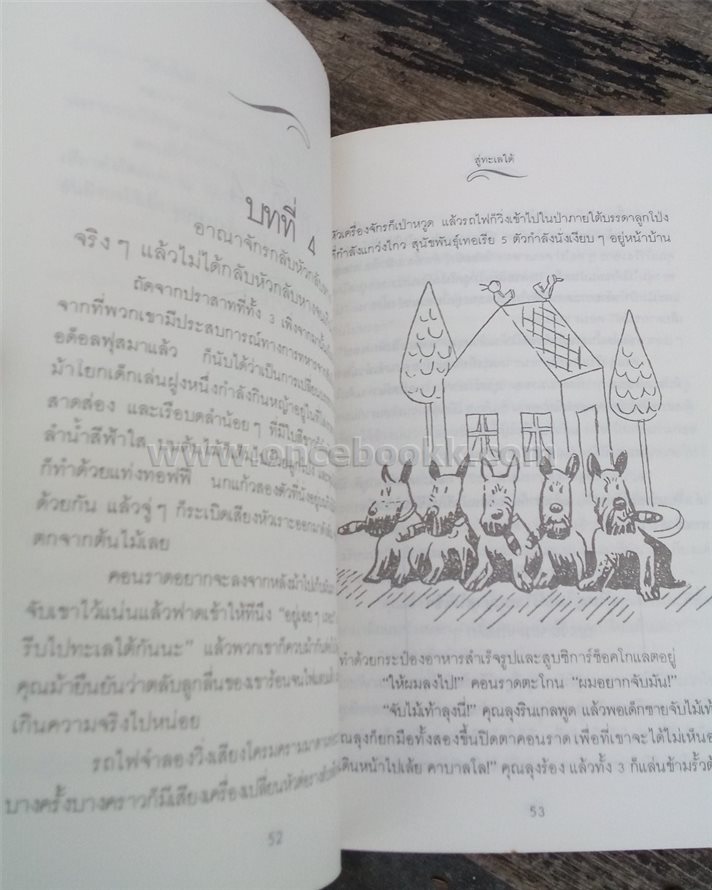 บทที่ 4
อาณาจักรกลับหัวกลับหาง
จริงๆ แล้วไม่ได้กลับหัวกลับหาง
ถัดจากปราสาทที่ทั้ง 3 เพิ่งจาก
จากที่พวกเขามีประสบการณ์ทางการทหารจาก
อด็อลฟุสมาแล้ว ก็นับได้ว่าเป็นการเปลี่ยน
ม้าโยกเด็กเล่นฝูงหนึ่งกำลังกินหญ้าอยู่ใน
สาดส่อง และเรือบดลำน้อยๆ ที่มีใบสีขาว
ลำน้ำสีฟ้าใส
www.oncebookk.com
ก็ทำด้วยแท่งทอฟฟี่ นกแก้วสองตัวที่นั่งอยู่
ด้วยกัน แล้วจู่ๆ ก็ระเบิดเสียงหัวเราะออกมา
ตกจากต้นไม้เลย
คอนราดอยากจะลงจากหลังม้าไป
จับเขาไว้แน่นแล้วฟาดเข้าให้ทีนึง "อยู่เฉยๆ
รีบไปทะเลใต้กันนะ" แล้วพวกเขาก็ควบม้ากัน
คุณม้ายืนยันว่าตลับลูกลื่นของเขาร้อนจน
เกินความจริงไปหน่อย
รถไฟจำลองวิ่งเสียงโครมคราม
บางครั้งบางคราวก็มีเสียงเครื่องเปลี่ยนหัว
52
สู่ทะเลใต้
หัวเครื่องจักรก็เป่าหวูด แล้วรถไฟก็วิ่งเข้าไปในป่าภายใต้บรรดาลูกโป่ง
ที่กำลังแกว่งไกว สุนัขพันธุ์เทอเรีย 5 ตัวกำลังนั่งเงียบๆ อยู่หน้าบ้าน
ทำด้วยกระป๋องอาหารสำเร็จรูปและสูบซิการ์ช็อคโกแลตอยู่
"ให้ผมลงไป!" คอนราดตะโกน "ผมอยากจับมัน!"
"จับไม้เท้าลุงนี่!" คุณลุงรินเกลพูด แล้วพอเด็กชายจับไม้เท้า
คุณลุงก็ยกมือทั้งสองขึ้นปิดตาคอนราด เพื่อที่เขาจะได้ไม่เห็นอ
"เดินหน้าไปเล้ย คาบาลโล!" คุณลุงร้อง แล้วทั้ง 3 ก็แล่นข้ามรั้วต้
53